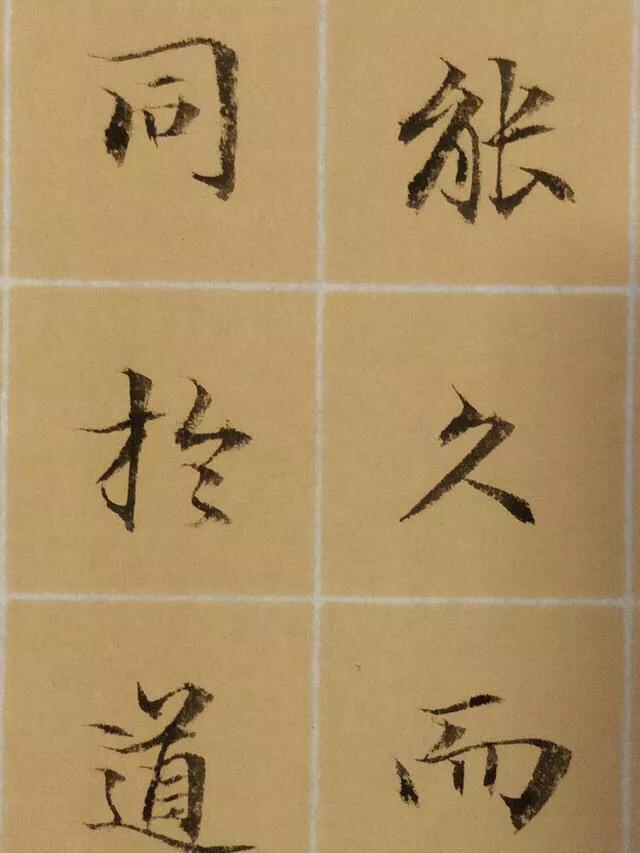 能久而
同於道